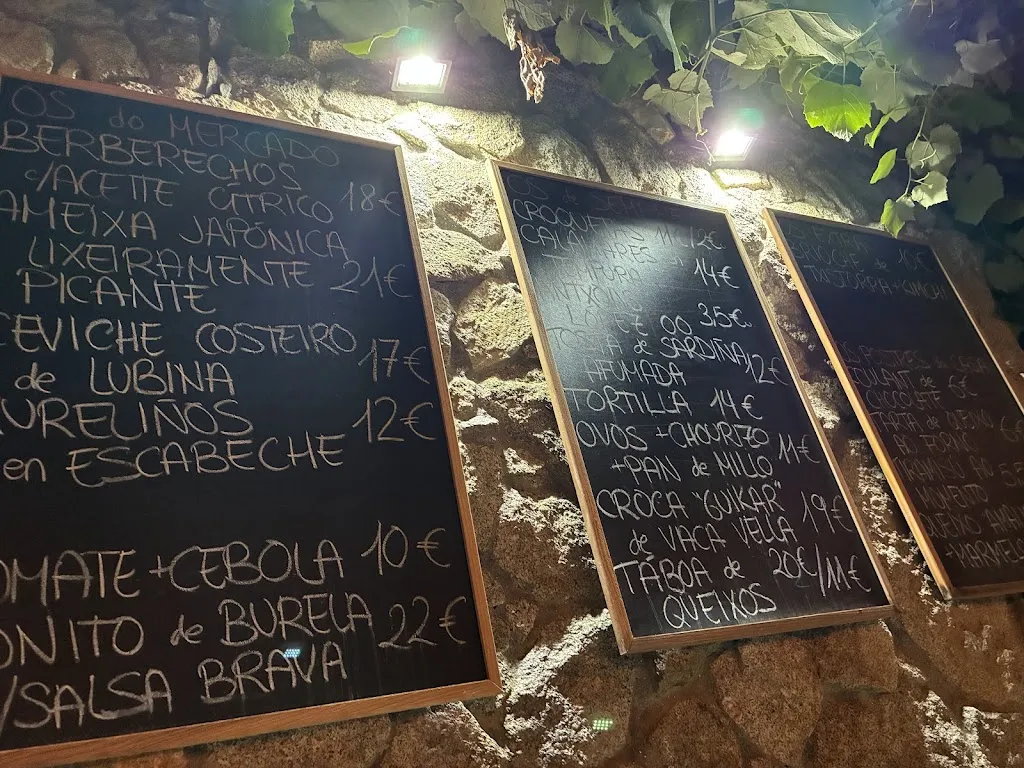 OS do MERCADO
BERBERECHOS
c/ACEITE CÍTRICO 18€
AMEIXA JAPÓNICA
LIXEIRAMENTE 21€
PICANTE
CEVICHE COSTEIRO
de LUBINA 17€
XURELIÑOS 12€
en ESCABECHE
TOMATE + CEBOLA 10€
BONITO de BURELA 22€
c/SALSA BRAVA
OS de
CROQUETAS 11€/12€
CALAMARES
14€
LÓPEZ 00 35€
TOSTA de SARDIÑA
AFUMADA 12€
TORTILLA 14€
OVOS + CHOURIZO
+PAN de MILLO 11€
CROCA "GUIKAR"
de VACA VELLA 19€
TÁBOA de 20€/11€
QUEIXOS
10€
OS POSTRES de CASA
COULANT de
CHOCOLATE 6€
TARTA de QUEIXO
AO FORNO
TIRAMISÚ AO
MOMENTO
QUEIXO
+MARMELO